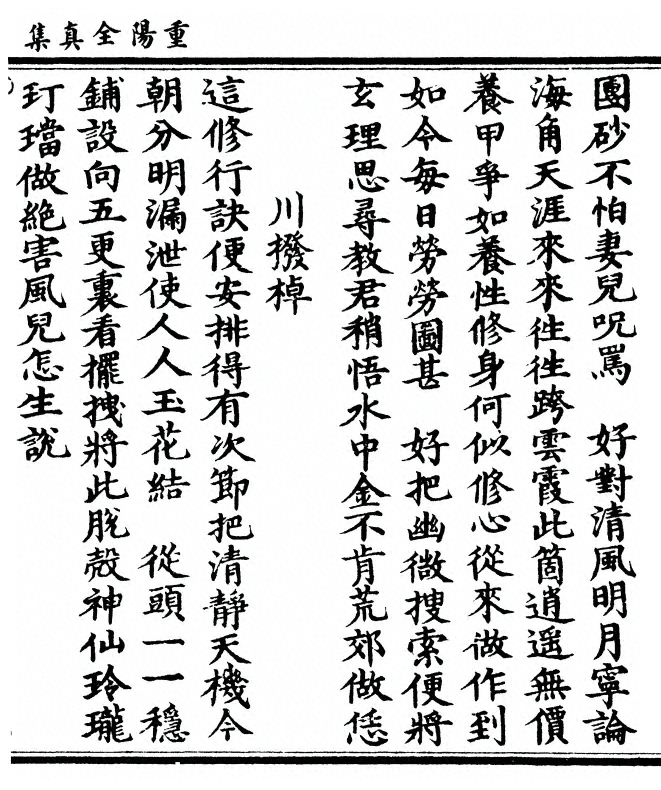 重陽全真集
團砂不怕妻兒呪罵　好對清風明月寧論
海角天涯來來徃徃跨雲霞此箇逍遥無價
養甲爭如養性修身何似修心從來做作到
如今每日勞勞圖甚　好把幽微搜索便將
玄理思尋教君稍悟水中金不肯荒郊做恁
川撥棹
這修行訣便安排得有次節把清靜天機今
朝分明漏泄使人人玉花結　從頭一一穩
鋪設向五更裏看擺拽將此脫殼神仙玲瓏
玎璫做絶害風兒怎生說